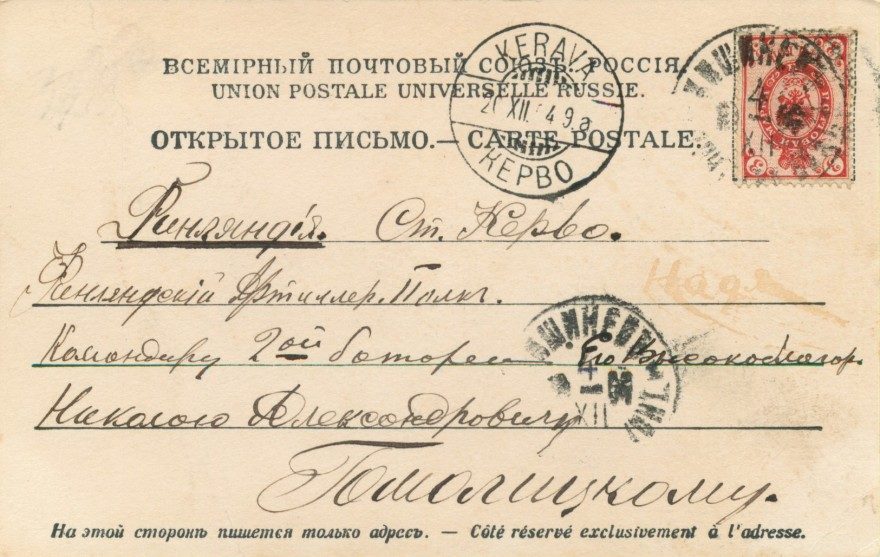 ВСЕМІРНЫЙ ПОЧТОВЫЙ СОЮЗЪ. РОССІЯ.
UNION POSTALE UNIVERSELLE RUSSIE.
ОТКРЫТОЕ ПИСЬМО. — CARTE POSTALE.
KERAVA
XII. 4 9.a
КЕРВО
КИШИНЕВ
4
XII
Финляндія. Ст. Керво.
Надя
Финляндскій Артиллер. Полкъ.
Командиру 2ой батареи Его Высокоблагор.
Николаю Александровичу
Гомолицкому.
КИШИНЕВЪ
4
XII
На этой сторонѣ пишется только адресъ. — Côté réservé exclusivement à l'adresse.